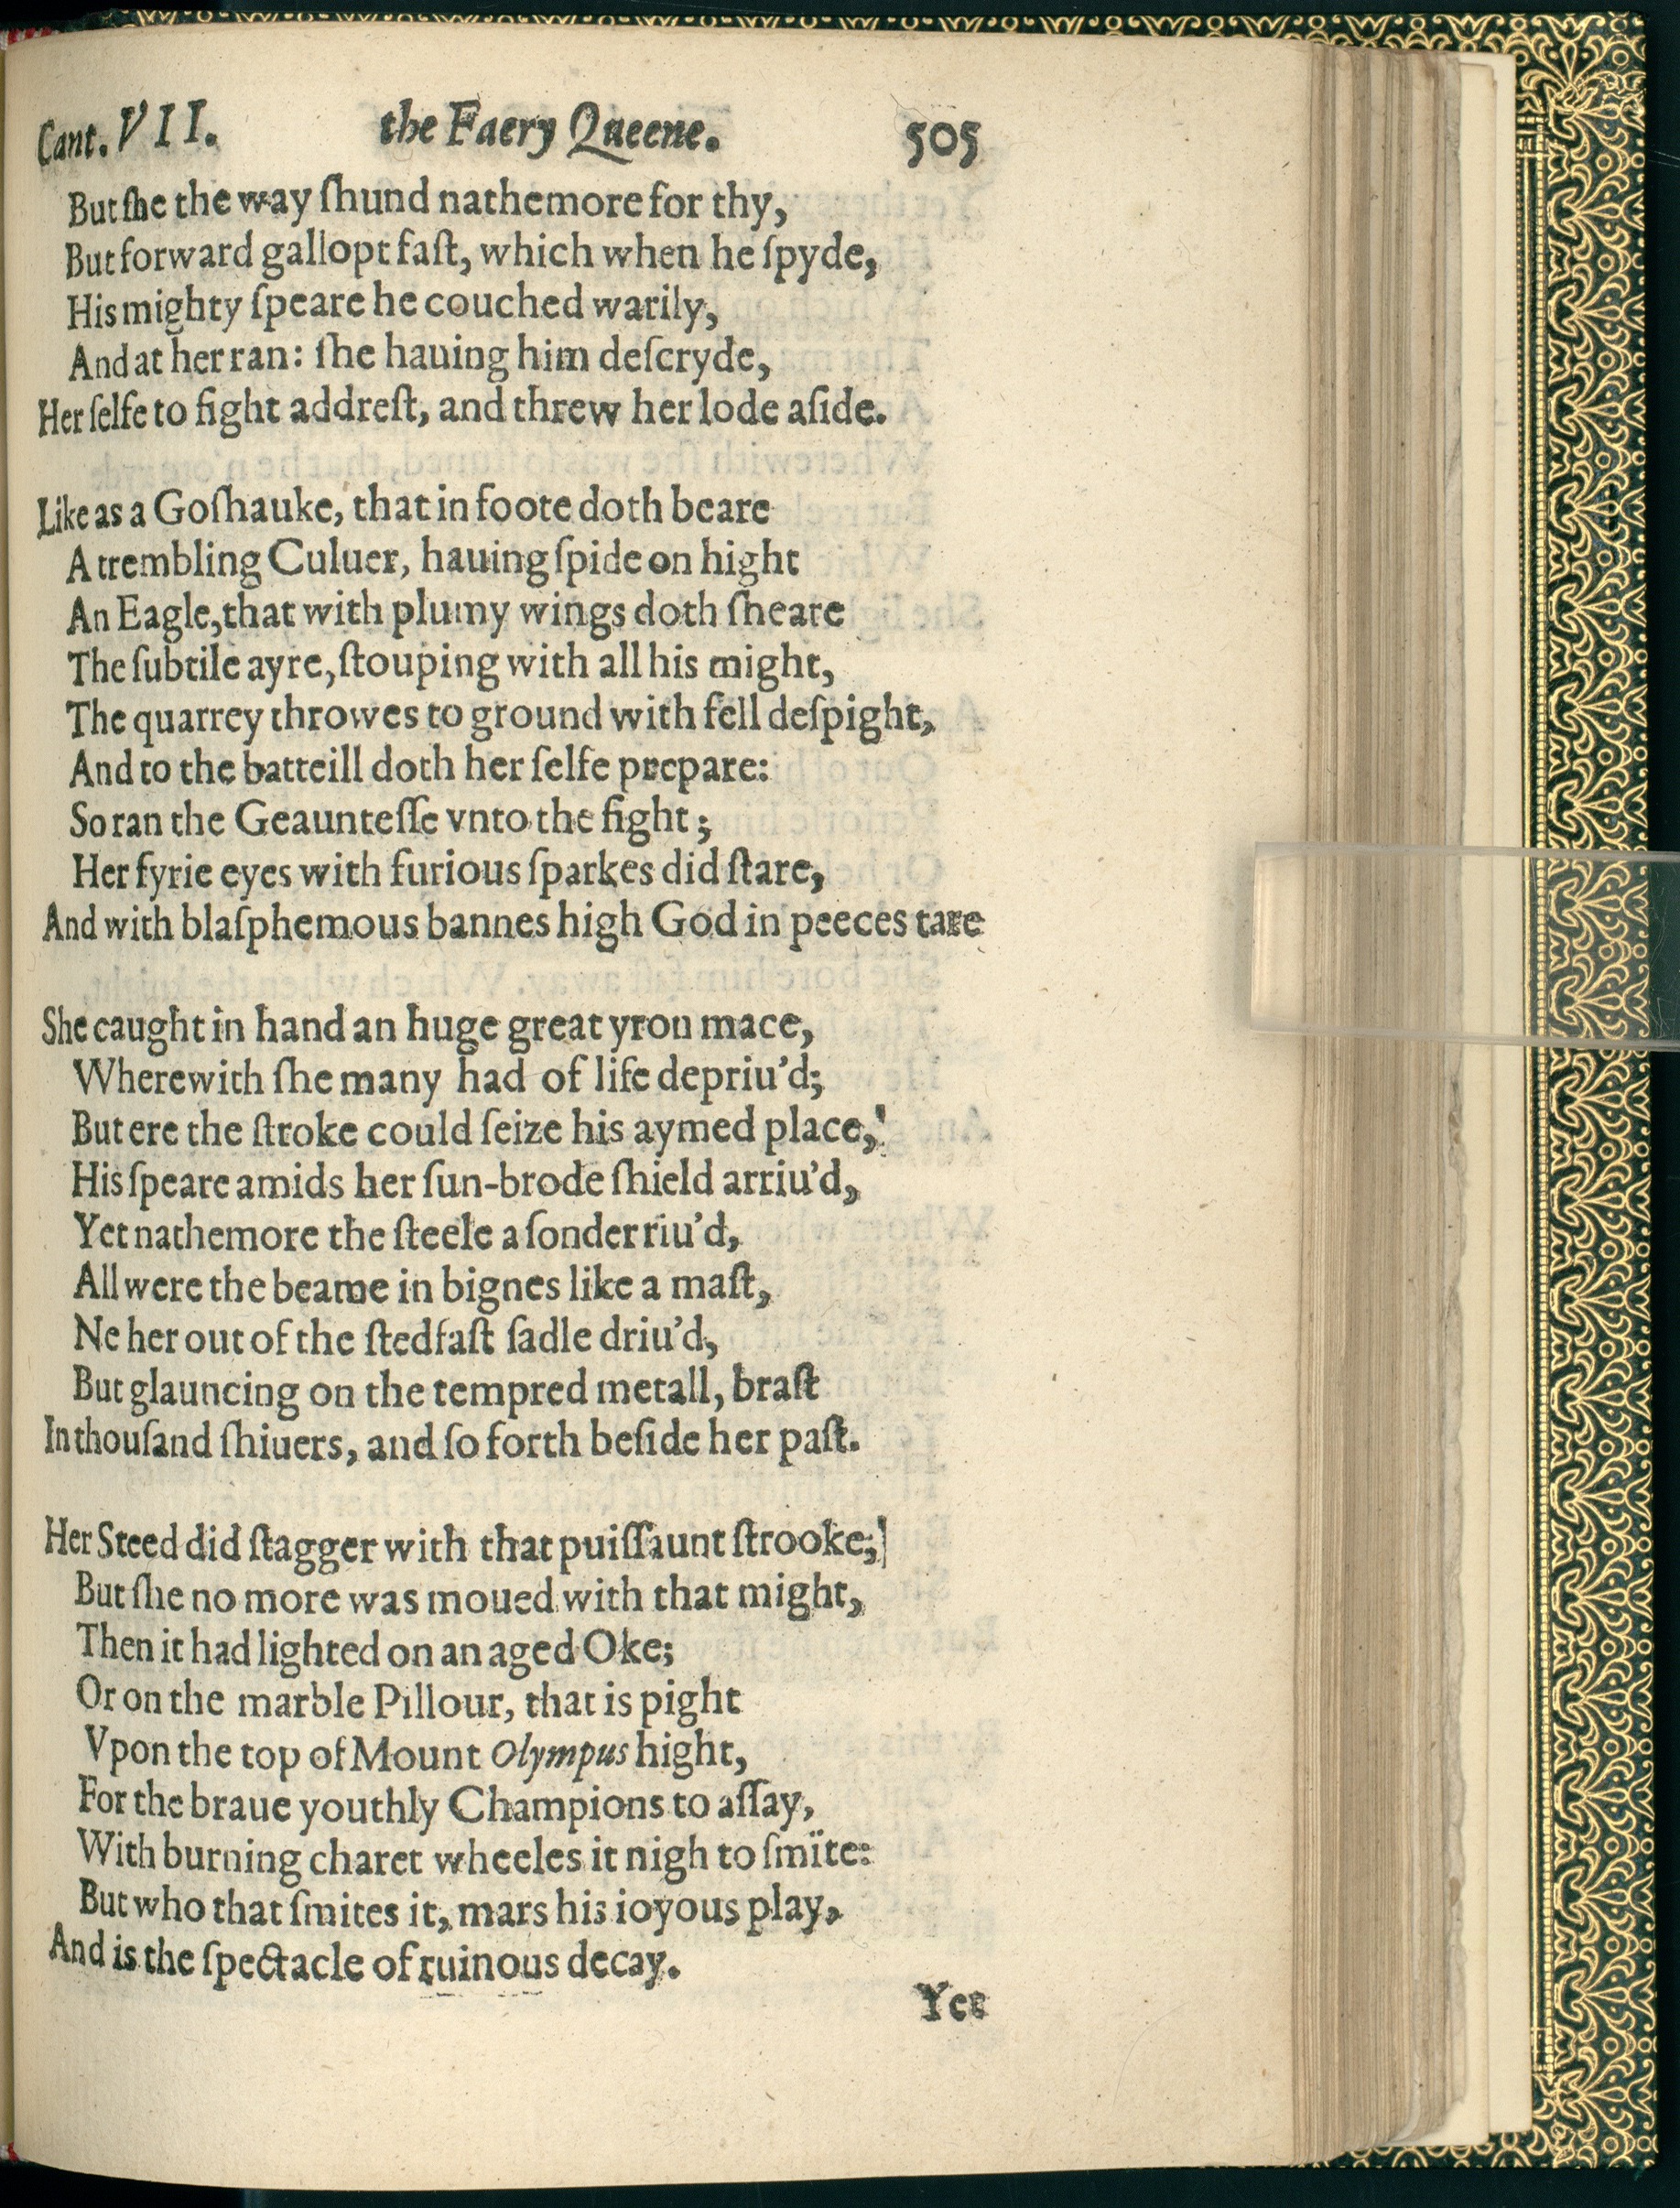 Cant. VII. the Faery Queene. 505
But ſhe the way ſhund nathemore for thy,
But forward gallopt faſt, which when he ſpyde,
His mighty ſpeare he couched warily,
And at her ran: ſhe hauing him deſcryde,
Her ſelfe to fight addreſt, and threw her lode aſide.
Like as a Goſhauke, that in foote doth beare
A trembling Culuer, hauing ſpide on hight
An Eagle, that with plumy wings doth ſheare
The ſubtile ayre, ſtouping with all his might,
The quarrey throwes to ground with fell deſpight,
And to the batteill doth her ſelfe prepare:
So ran the Geaunteſſe vnto the fight;
Her fyrie eyes with furious ſparkes did ſtare,
And with blaſphemous bannes high God in peeces tare
She caught in hand an huge great yron mace,
Wherewith ſhe many had of life depriu'd;
But ere the ſtroke could ſeize his aymed place,
His ſpeare amids her ſun-brode ſhield arriu'd,
Yet nathemore the ſteele a ſonder riu'd,
All were the beame in bignes like a maſt,
Ne her out of the ſtedfaſt ſadle driu'd,
But glauncing on the tempred metall, braſt
In thouſand ſhiuers, and ſo forth beſide her paſt.
Her Steed did ſtagger with that puiſſaunt ſtrooke;
But ſhe no more was moued with that might,
Then it had lighted on an aged Oke;
Or on the marble Pillour, that is pight
Vpon the top of Mount Olympus hight,
For the braue youthly Champions to aſſay,
With burning charet wheeles it nigh to ſmïte:
But who that ſmites it, mars his ioyous play,
And is the ſpectacle of ruinous decay.
Yet